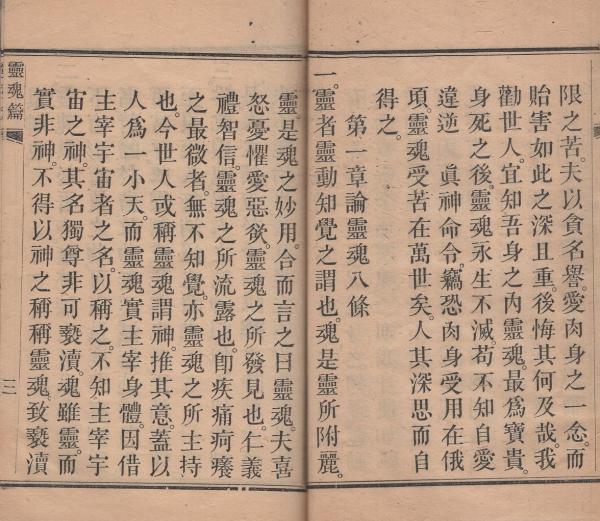 限之苦。夫以貪名譽。愛肉身之一念。而
貽害如此之深且重。後悔其何及哉。我
勸世人。宜知吾身之內靈魂。最爲寶貴。
身死之後。靈魂永生不滅。苟不知自愛
違逆　眞神命令。竊恐肉身受用在俄
頃。靈魂受苦在萬世矣。人其深思而自
得之。
第一章論靈魂八條
一。靈者靈動知覺之謂也。魂是靈所附麗。
靈。是魂之妙用。合而言之曰靈魂。夫喜
怒憂懼愛惡欲。靈魂之所發見也。仁義
禮智信。靈魂之所流露也。卽疾痛疴癢
之最微者。無不知覺。亦靈魂之所主持
也。今世人或稱靈魂謂神。推其意。蓋以
人爲一小天。而靈魂實主宰身體。因借
主宰宇宙者之名。以稱之。不知主宰宇
宙之神。其名獨尊非可褻瀆。魂雖靈。而
實非神。不得以神之稱稱靈魂。致褻瀆
靈魂篇
三